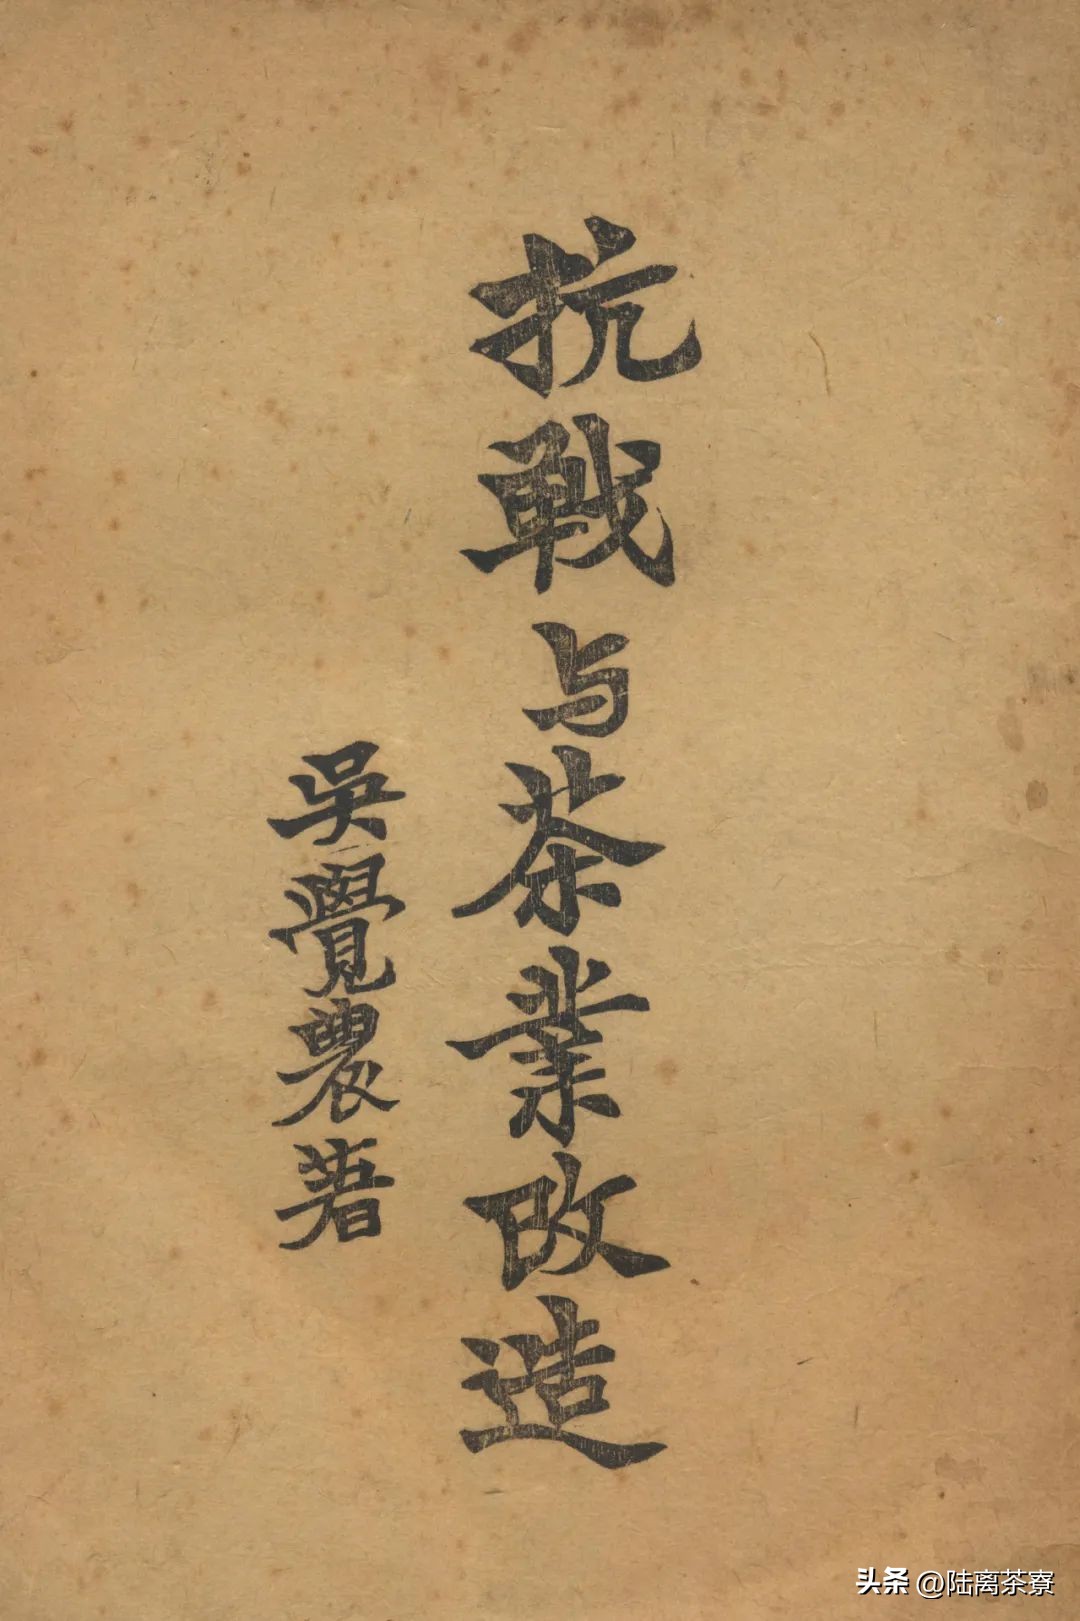 抗戰与茶業改造
吳覺農著
头条 @陆离茶寮